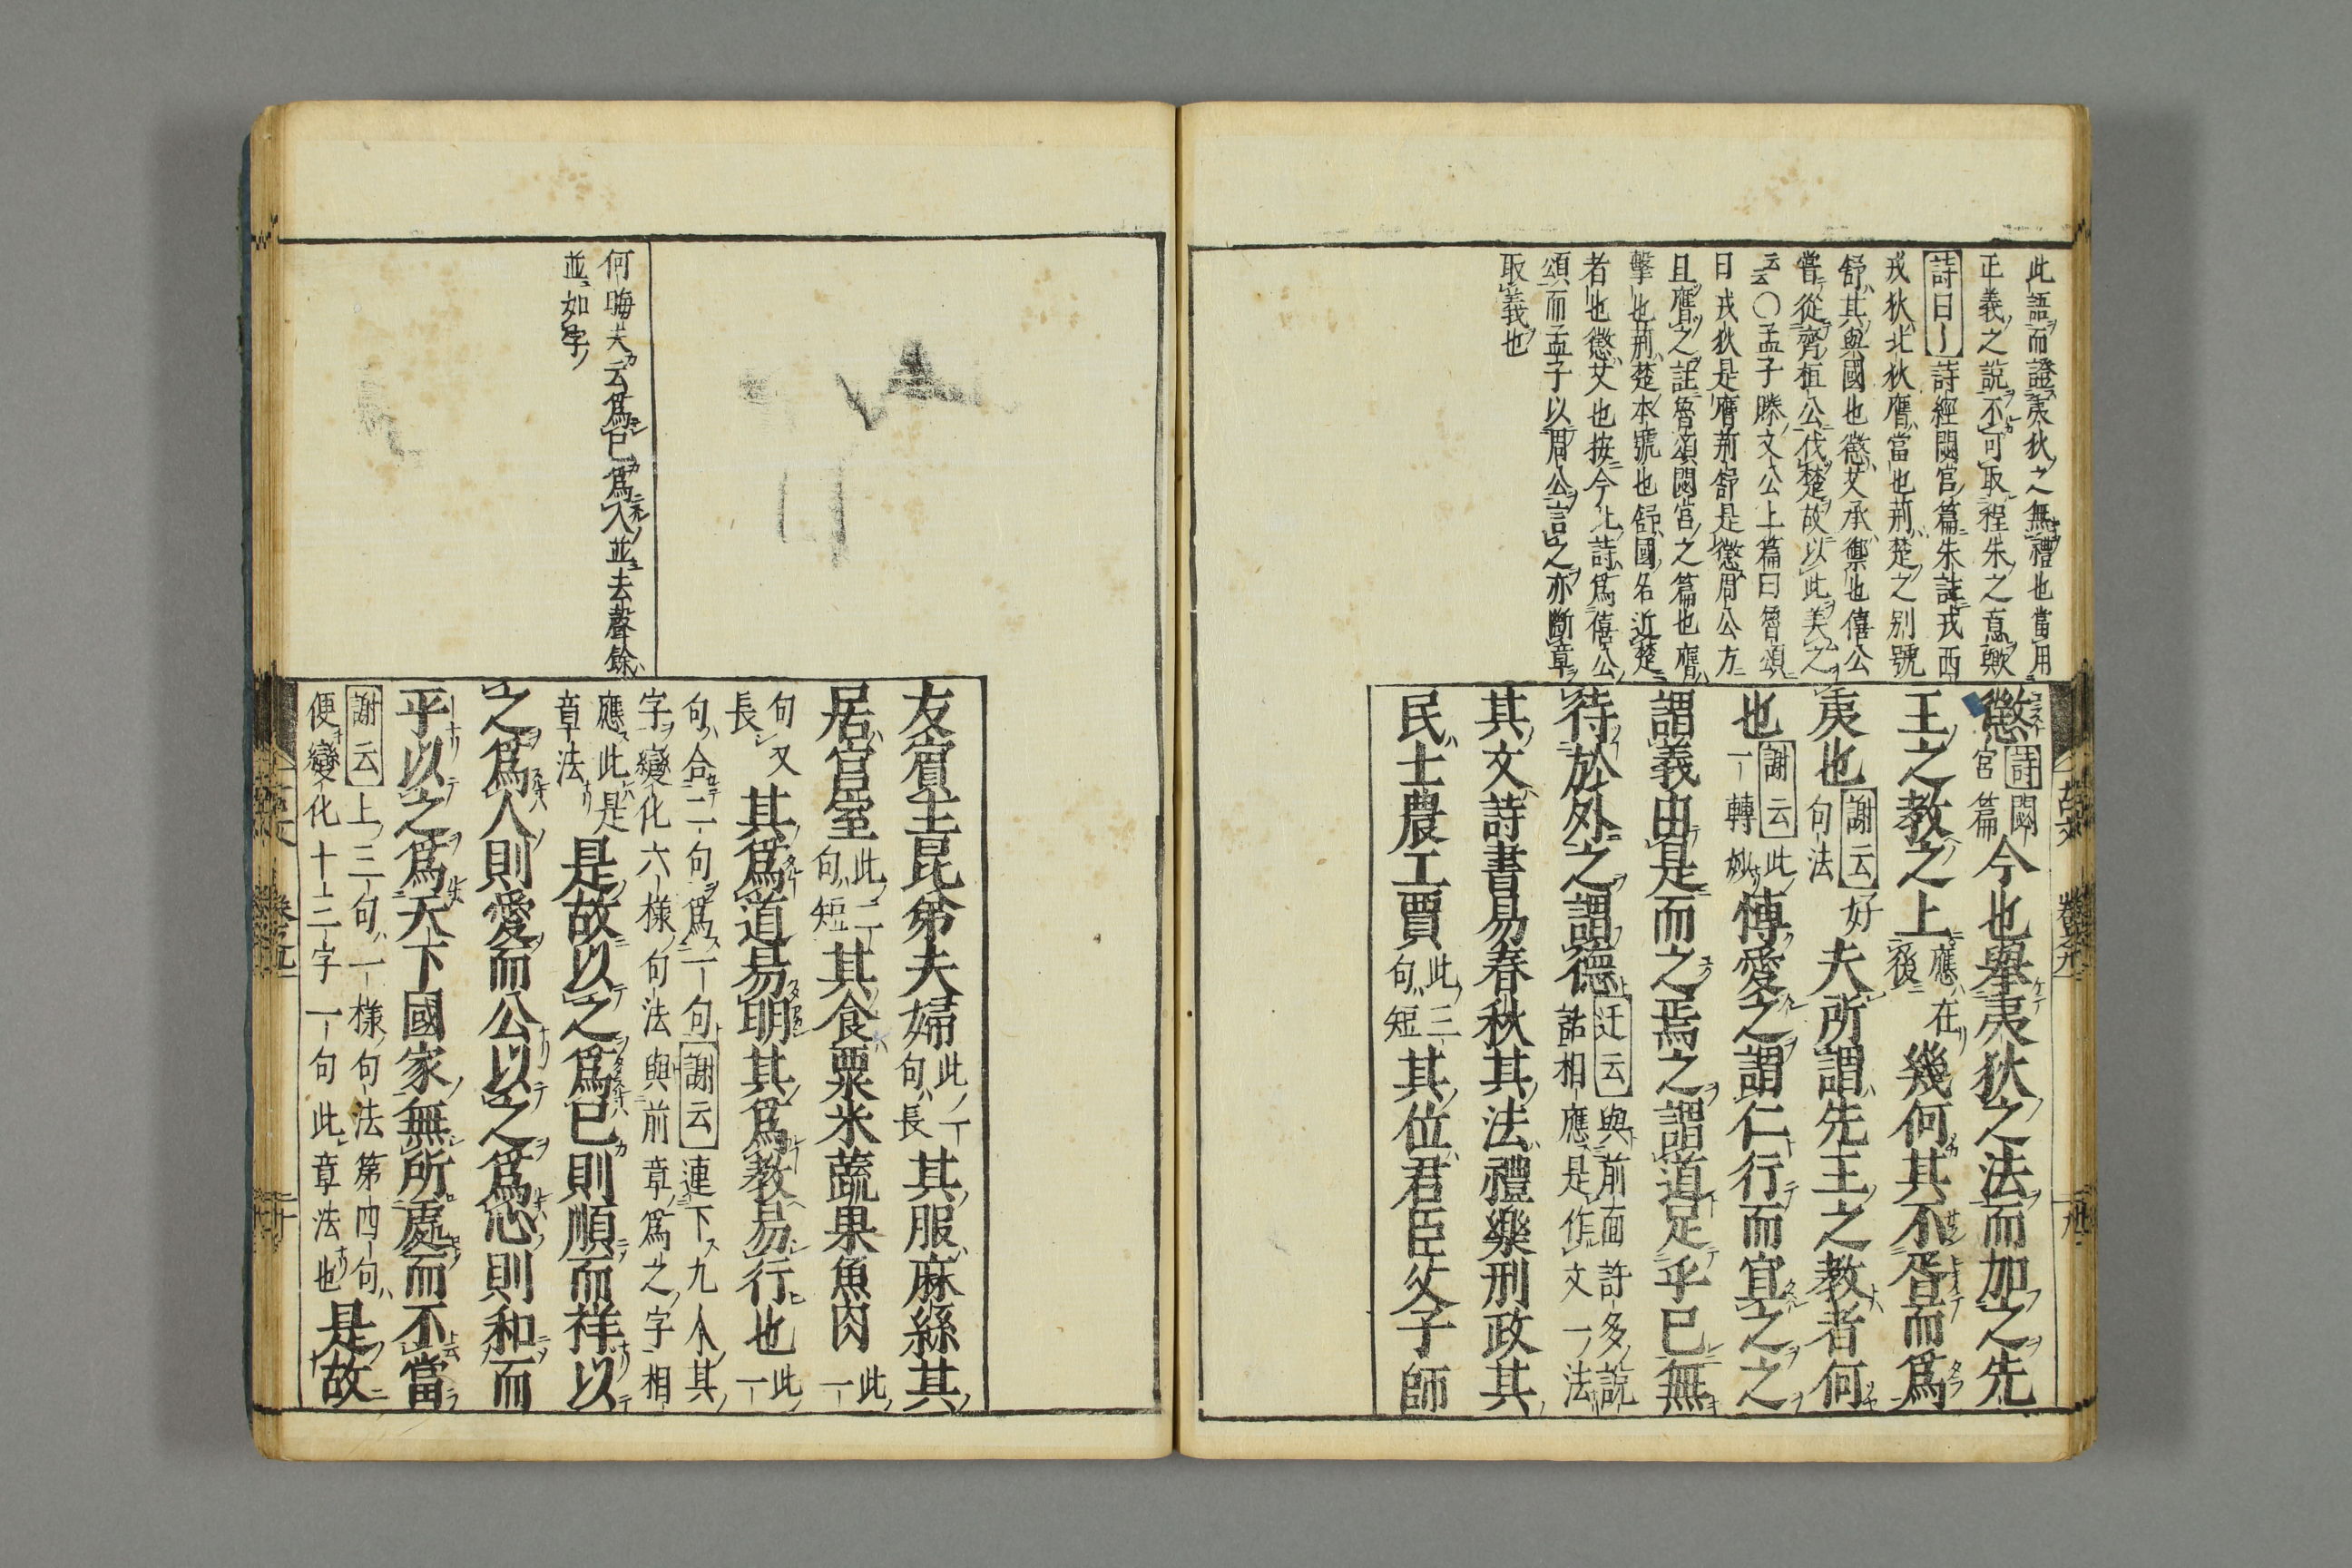 此語而證夷狄之無禮也當用
正義之説不可取程朱之意歟
詩曰〜詩經閟宮篇朱註戎西
戎狄北狄膺當也荊楚之別號
舒其與國也懲艾承禦也僖公
嘗從齊桓公伐楚故以此美之
云云〇孟子滕文公上篇曰魯頌
曰戎狄是膺荊舒是懲周公方
且膺之註魯頌閟宮之篇也膺
擊也荊楚本號也舒國名近楚
者也懲艾也按今此詩爲僖公
頌而孟子以周公言之亦斷章
取義也
懲詩閟宮篇今也舉夷狄之法而加之先
王之教之上應在後幾何其不胥而爲
夷也謝云好句法夫所謂先王之教者何
也謝云此一轉妙博愛之謂仁行而宜之之
謂義由是而之焉之謂道足乎已無
待於外之謂德迂云與前面許多説話相應是作文一法
其文詩書易春秋其法禮樂刑政其
民士農工賈此三句短其位君臣父子師
古文 卷五 十九
何晦夫云爲已爲人並去聲餘
並如字
友賓主昆弟夫婦此一句長其服麻絲其
居宮室此二句短其食粟米蔬果魚肉此一
句又長其爲道易明其爲教易行也此一
句合二句爲一句謝云連下九个其
字變化六樣句法與前章爲之字相
應此是章法是故以之爲已則順而祥以
之爲人則愛而公以之爲心則和而
平以之爲天下國家無所處而不當
謝云上三句一樣句法第四句
便變化十三字一句此章法也是故
卷五 二十